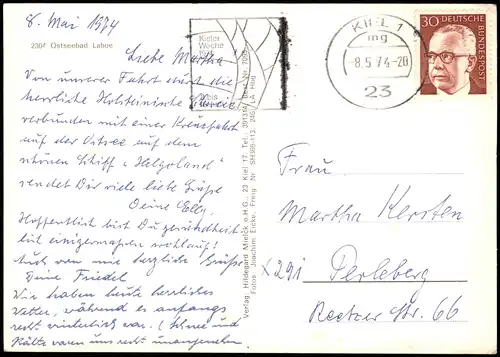 8. Mai 1974
2304 Ostseebad Laboe
Liebe Martha
Von unserer Fahrt durch die
herrliche Holsteinische Schweiz
verbunden mit einer Kreuzfahrt
auf der Ostsee auf dem
schönen Schiff „Helgoland"
sendet Dir viele liebe Grüße
Deine Elly.
Hoffentlich bist Du gesundheitlich
mit einigermaßen wohlauf!
Auch von mir herzliche Grüße
Deine Friedel
Wir haben heute herrliches
Wetter, während es anfangs
recht winterlich war. (Schnee und
Kälte waren uns recht unangenehm.
Kieler
Woche
1974
KIEL 1
mg
-8.5.74-20
23
30 DEUTSCHE
BUNDESPOST
Verlag Hildegard Mielck o.H.G. 23 Kiel 17, Tel.
Fotos Joachim Eicke, Freig. Nr. SH
Frau
Martha Kersten
x 291 Perleberg
Str. 66